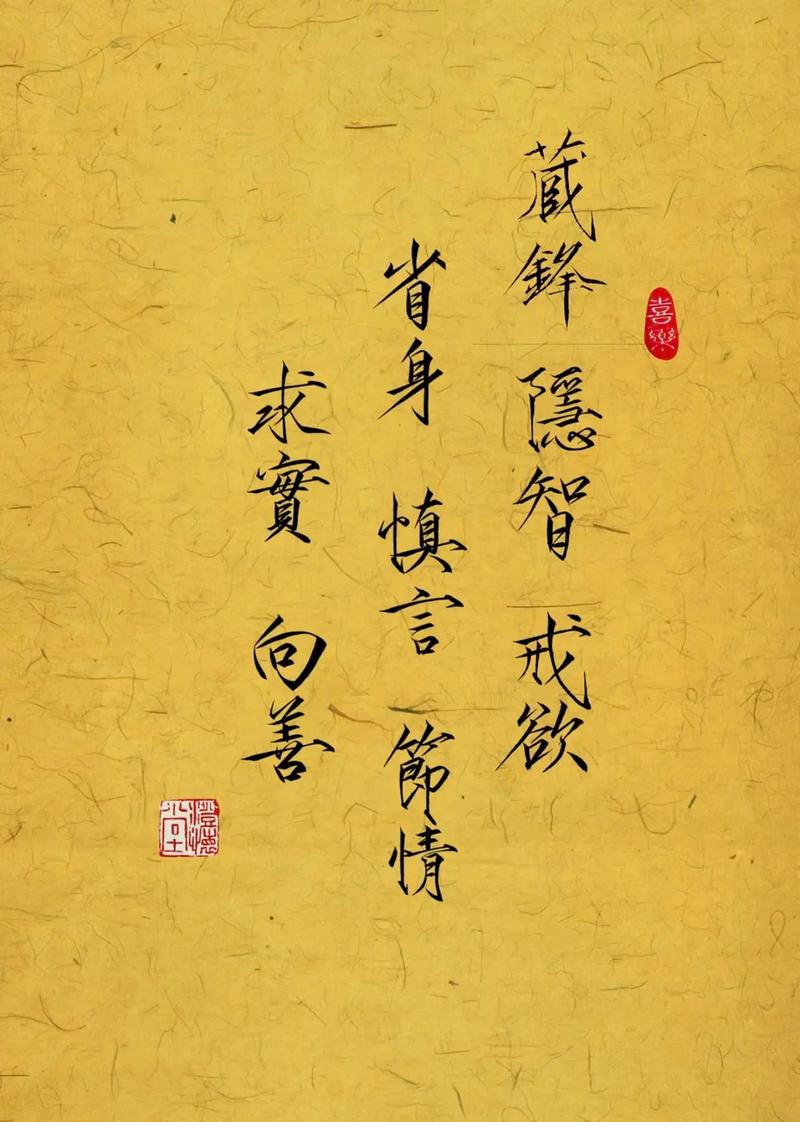 喜樂
藏鋒 隱智 戒欲
省身 慎言 節情
求實 向善
澄懷堂